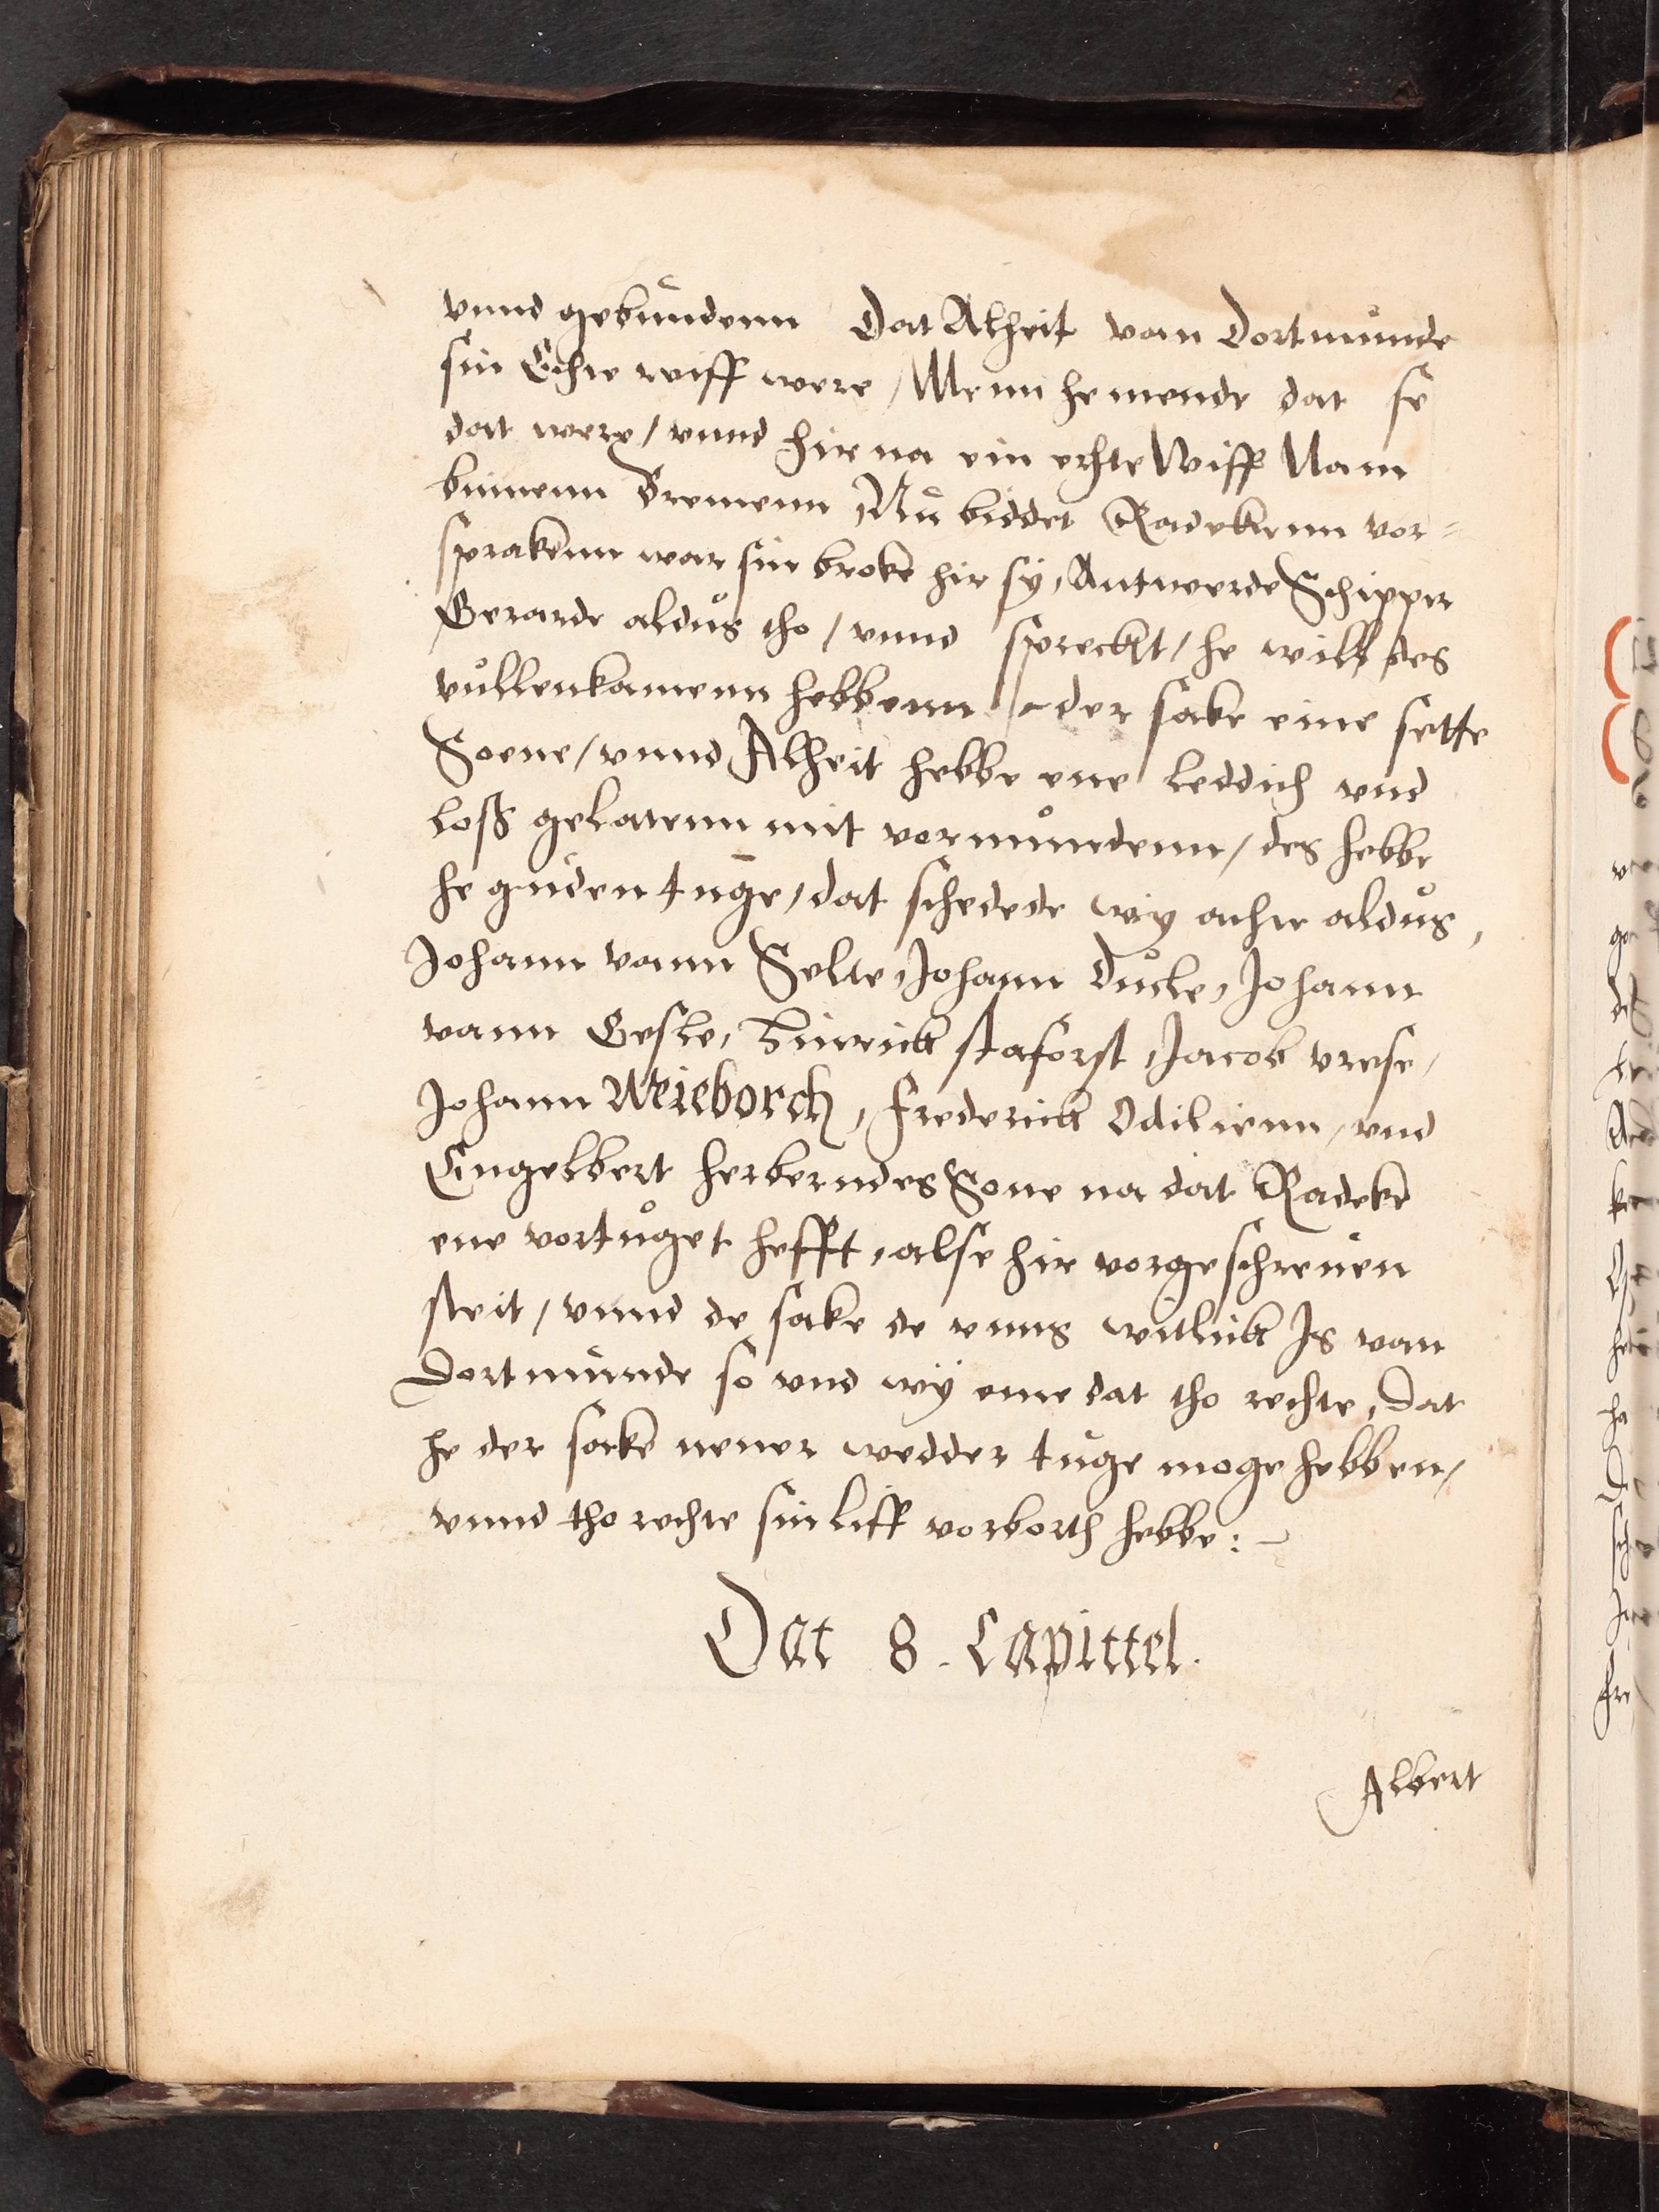 vnnd gebundenn Dat Alheit van Dortmunde
sin Echte wiff were / Menn he mende dat se
dot were / vnnd hirna ein echte Wiff Nam
binnenn Bremenn, Nu biddet Radekenn vor=
sprakenn war sin broke hir sy, Antwerde Schipper
Gerarde aldus tho / vnnd spreckt / he will des
vullenkamenn hebbenn der sake eine sette
Soene / vnnd Alheit hebbe ene leddich vnd
loß gelatenn mit vormundenn / des hebbe
he guden tuge / dat schedede wy achte aldus,
Johann vann Selte, Johann Ducle, Johann
vann Gesle, Hinrick staforst, Jacob vrese,
Johann Meieborch, Frederick Odilienn, vnd
Engelbert herberndes Sone na dat Radeke
ene vortuget hefft, alse hir vorgeschreuen
steit / vnnd de sake de vnns witlick Is van
Dortmunde so vnd wy eme dat tho rechte, dat
he der sake nener wedder tuge moge hebben,
vnnd tho rechte sin liff vorborth hebbe :-
Dat 8. Capittel.
Albert